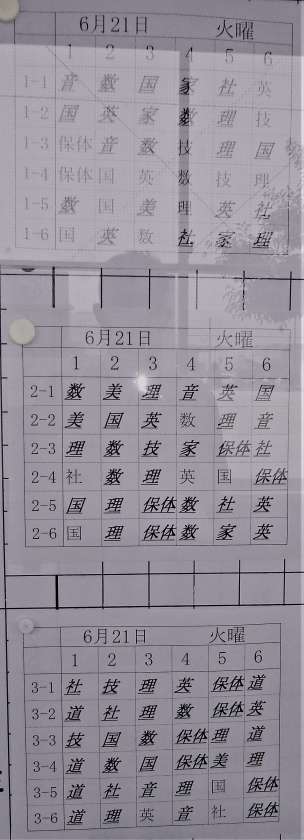 6月21日 火曜
1 2 3 4 5 6
1-1 音 数 国 家 社 英
1-2 国 英 家 数 理 技
1-3 保体 音 数 技 理 国
1-4 保体 国 英 数 技 理
1-5 数 国 美 理 英 社
1-6 国 英 数 社 家 理
6月21日 火曜
1 2 3 4 5 6
2-1 数 美 理 音 英 国
2-2 美 国 英 数 理 音
2-3 理 数 技 家 保体 社
2-4 社 数 理 英 国 保体
2-5 国 理 保体 数 社 英
2-6 国 理 保体 数 家 英
6月21日 火曜
1 2 3 4 5 6
3-1 社 技 理 英 保体 道
3-2 道 社 理 数 保体 英
3-3 技 国 数 保体 理 道
3-4 道 数 国 保体 美 理
3-5 道 社 音 理 国 保体
3-6 道 理 英 音 社 保体